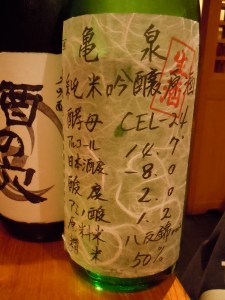 亀泉
純米吟醸原酒
生酒
酵母 CEL-24
アルコール 14.7
日本酒度 -8.0
酸度 2.0
アミノ酸 1.2
原料米 八反錦
精米 50%